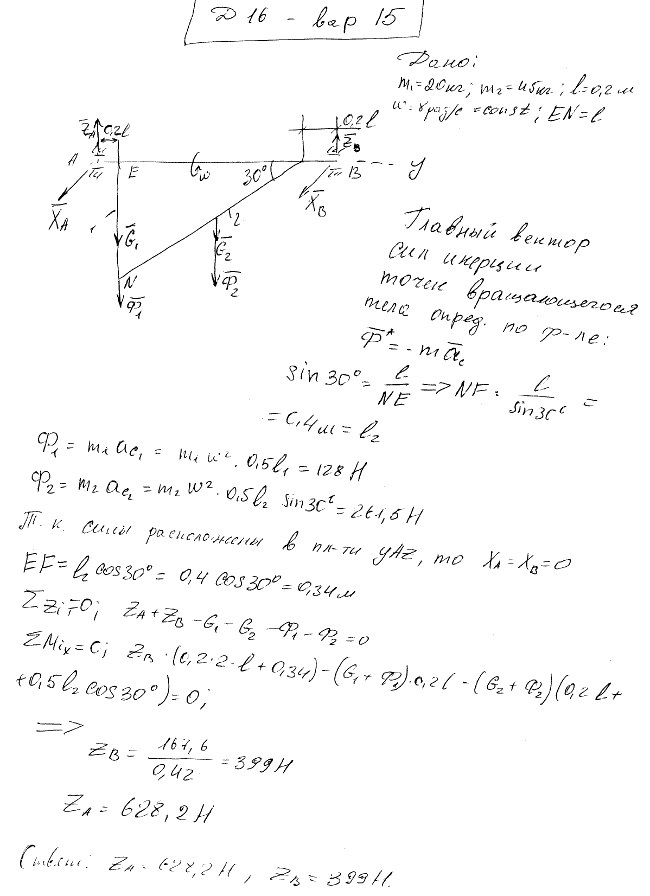 Д 16 - вар 15
Дано:
m₁=20кг; m₂=45кг; l=0,2м
=const; EN=l
Z̄A 0,2l 0,2l Z̄B
A E ω 30° B y
X̄A 1 Ḡ₁ 2 Ḡ₂ X̄B
N Φ̄₂
Φ̄₁
Главный вектор
сил инерции
точек вращающегося
тела опред. по ф-ле:
Φ̄* = - m āc
sin 30° = l/NE => NF = l/sin30° =
= 0,4м = l₂
Φ₁ = m₁ ac₁ = m₁ ω² · 0,5l₁ = 128 Н
Φ₂ = m₂ ac₂ = m₂ ω² · 0,5l₂ sin30° = Н
Т. к. силы расположены в пл-ти yAz, то XA = XB = 0
EF = l₂ cos30° = 0,4 cos30° = 0,34м
ΣZi = 0; ZA + ZB - G₁ - G₂ - Φ₁ - Φ₂ = 0
ΣMix = 0; ZB · (0,2·2·l + 0,34) - (G₁ + Φ₁)·0,2l - (G₂ + Φ₂)(0,2l +
+ 0,5l₂ cos30°) = 0;
=>
ZB = 167,6/0,42 = 399 Н
ZA = 628,2 Н
Ответ: ZA = 628,2 Н, ZB = 399 Н.